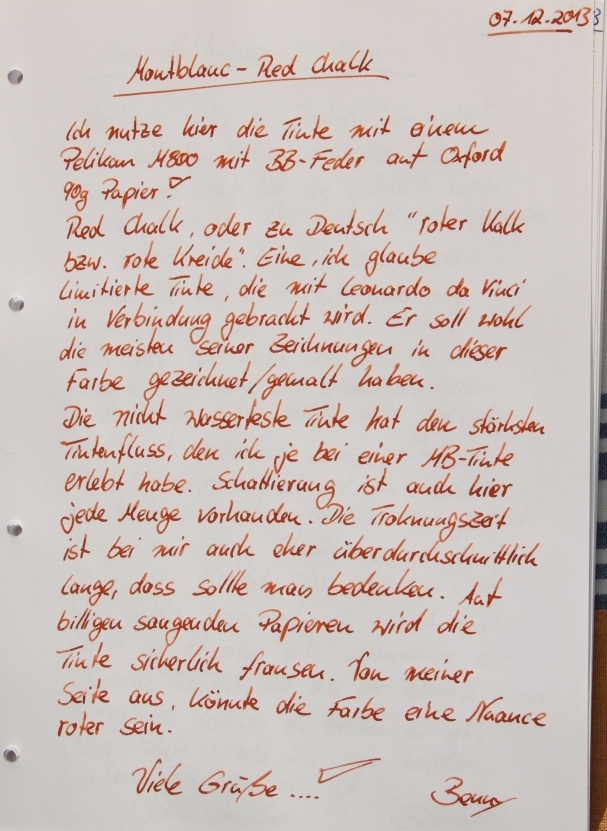 07.12.2013
Montblanc - Red Chalk
Ich nutze hier die Tinte mit einem
Pelikan M800 mit BB-Feder auf Oxford
90g Papier!
Red Chalk, oder zu Deutsch "roter Kalk
bzw. rote Kreide". Eine, ich glaube
limitierte Tinte, die mit Leonardo da Vinci
in Verbindung gebracht wird. Er soll wohl
die meisten seiner Zeichnungen in dieser
Farbe gezeichnet/gemalt haben.
Die nicht wasserfeste Tinte hat den stärksten
Tintenfluss, den ich je bei einer MB-Tinte
erlebt habe. Schattierung ist auch hier
jede Menge vorhanden. Die Troknungszeit
ist bei mir auch eher überdurchschnittlich
lange, dass sollte man bedenken. Auf
billigen saugenden Papieren wird die
Tinte sicherlich fransen. Von meiner
Seite aus, könnte die Farbe eine Nuance
roter sein.
Viele Grüße ....